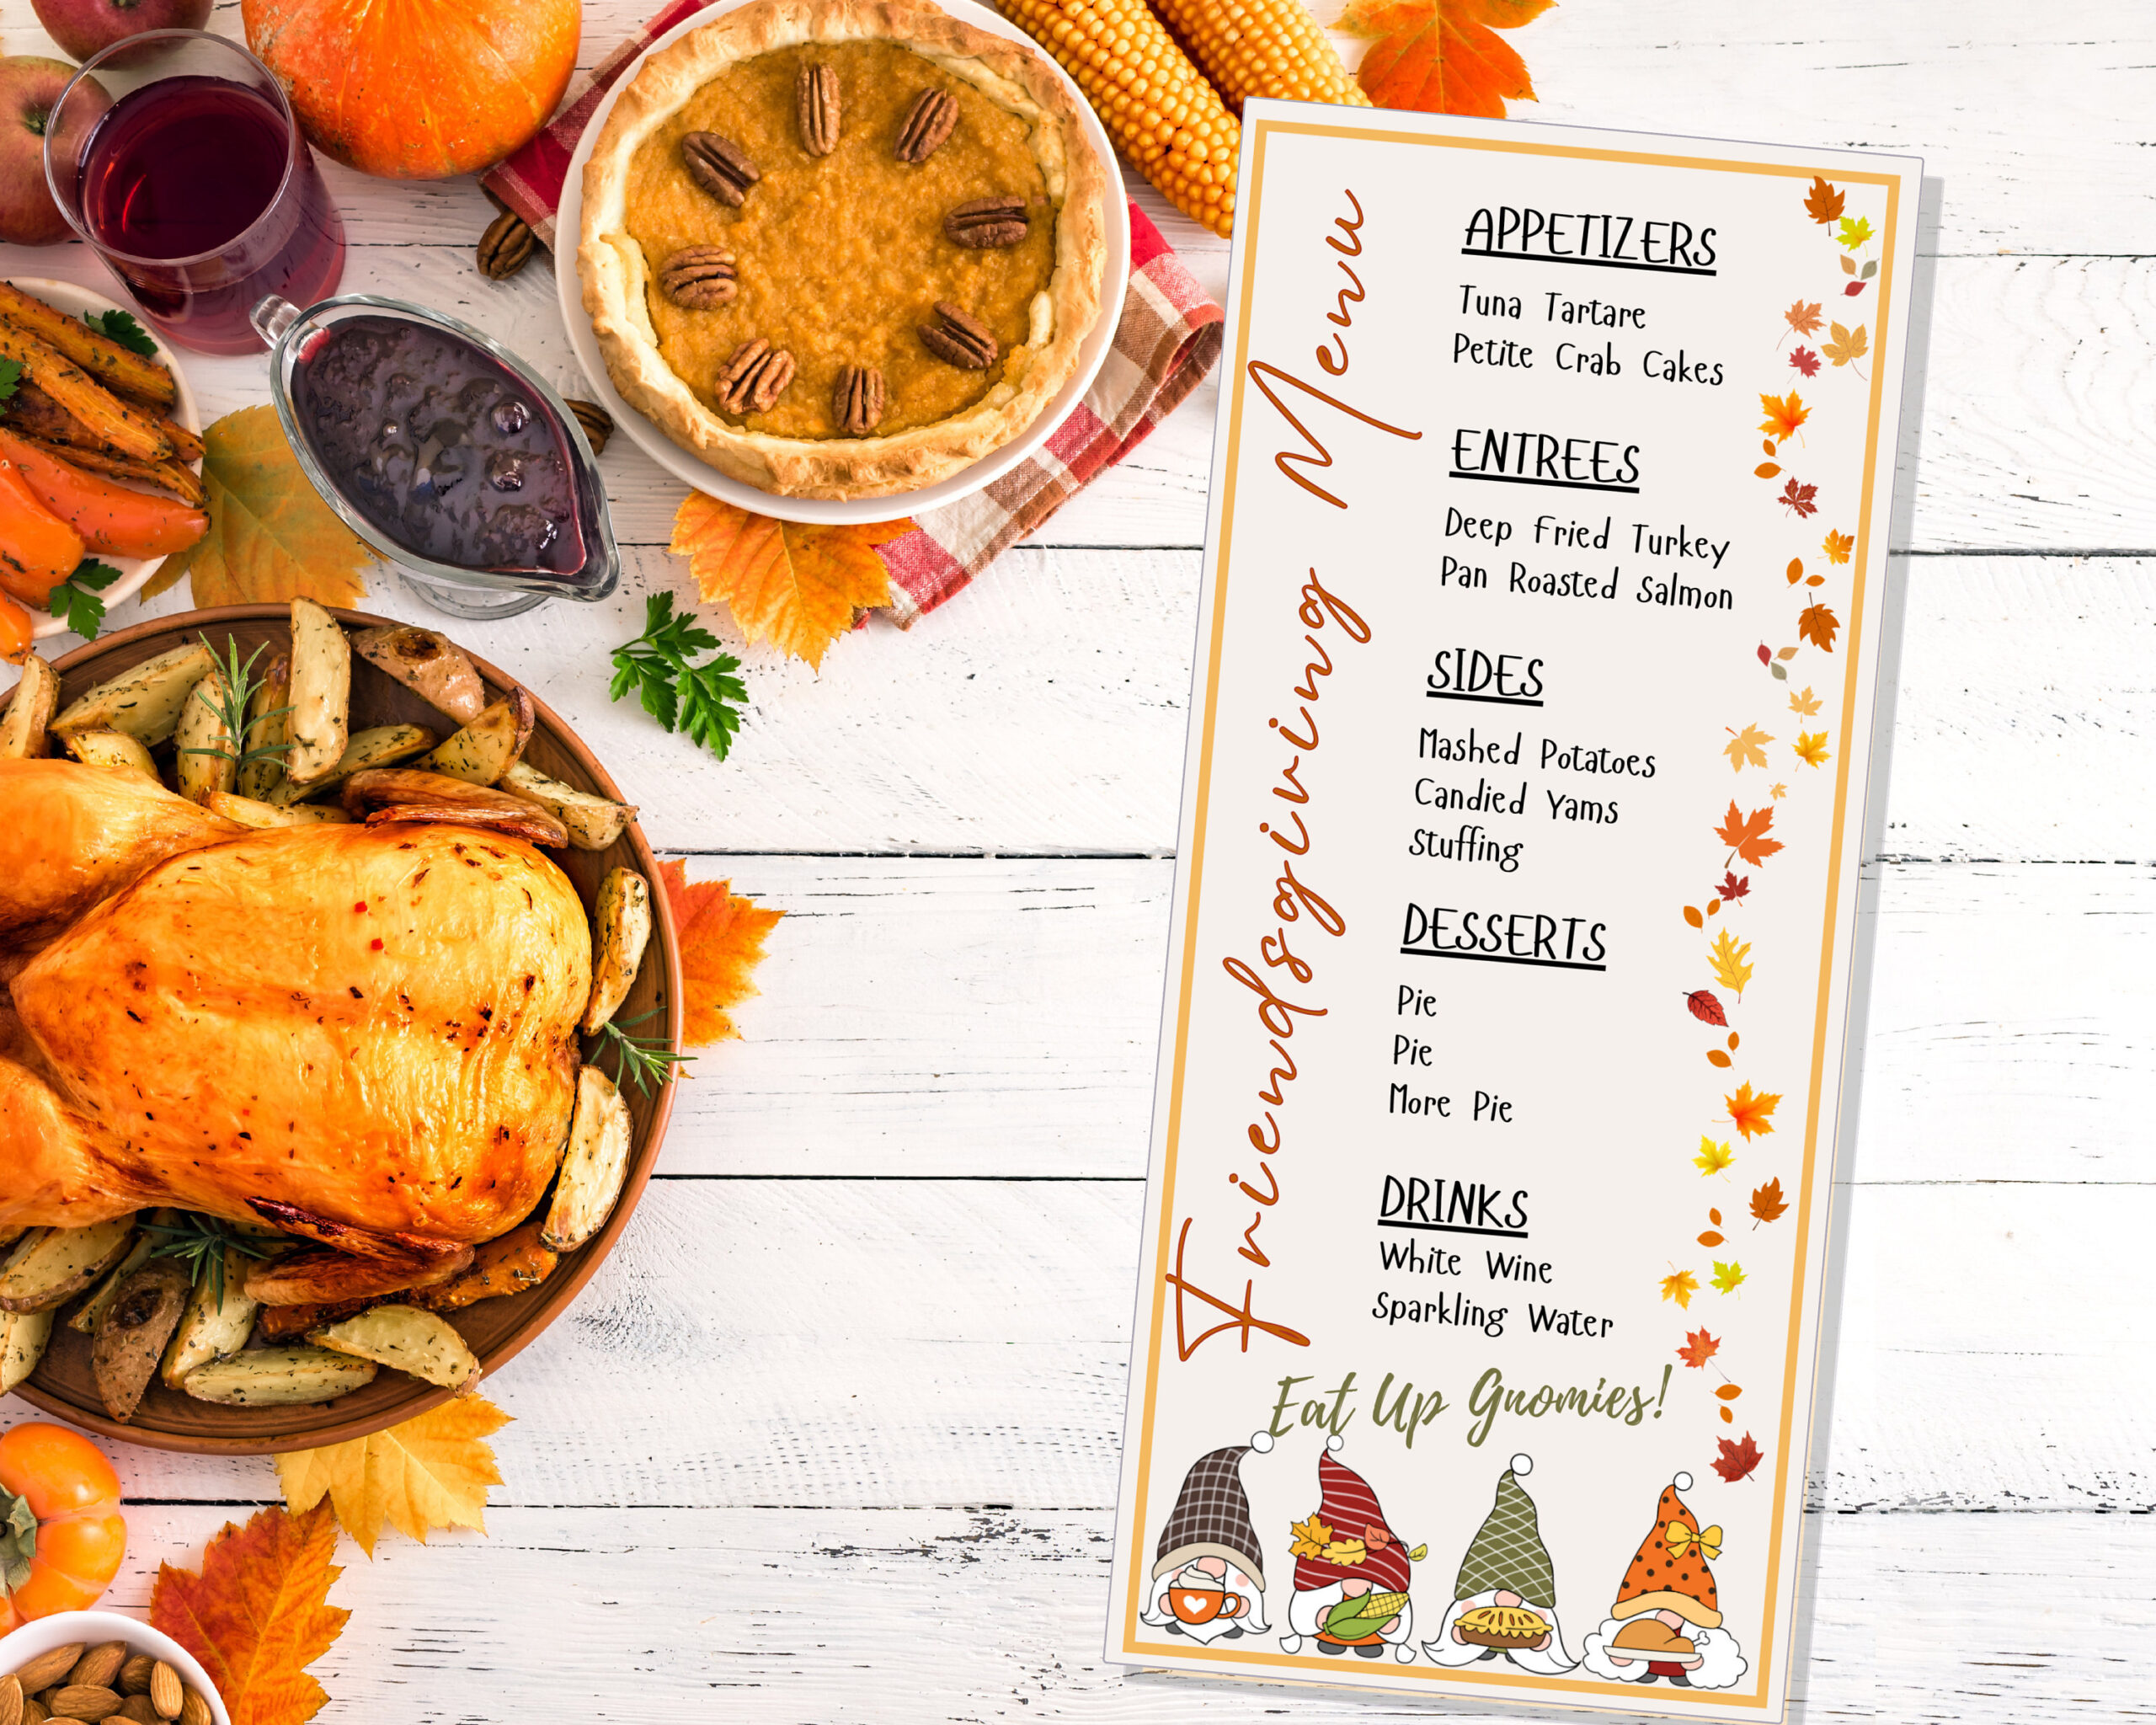 Friendsgiving Menu
APPETIZERS
Tuna Tartare
Petite Crab Cakes
ENTREES
Deep Fried Turkey
Pan Roasted Salmon
SIDES
Mashed Potatoes
Candied Yams
Stuffing
DESSERTS
Pie
Pie
More Pie
DRINKS
White Wine
Sparkling Water
Eat Up Gnomies!